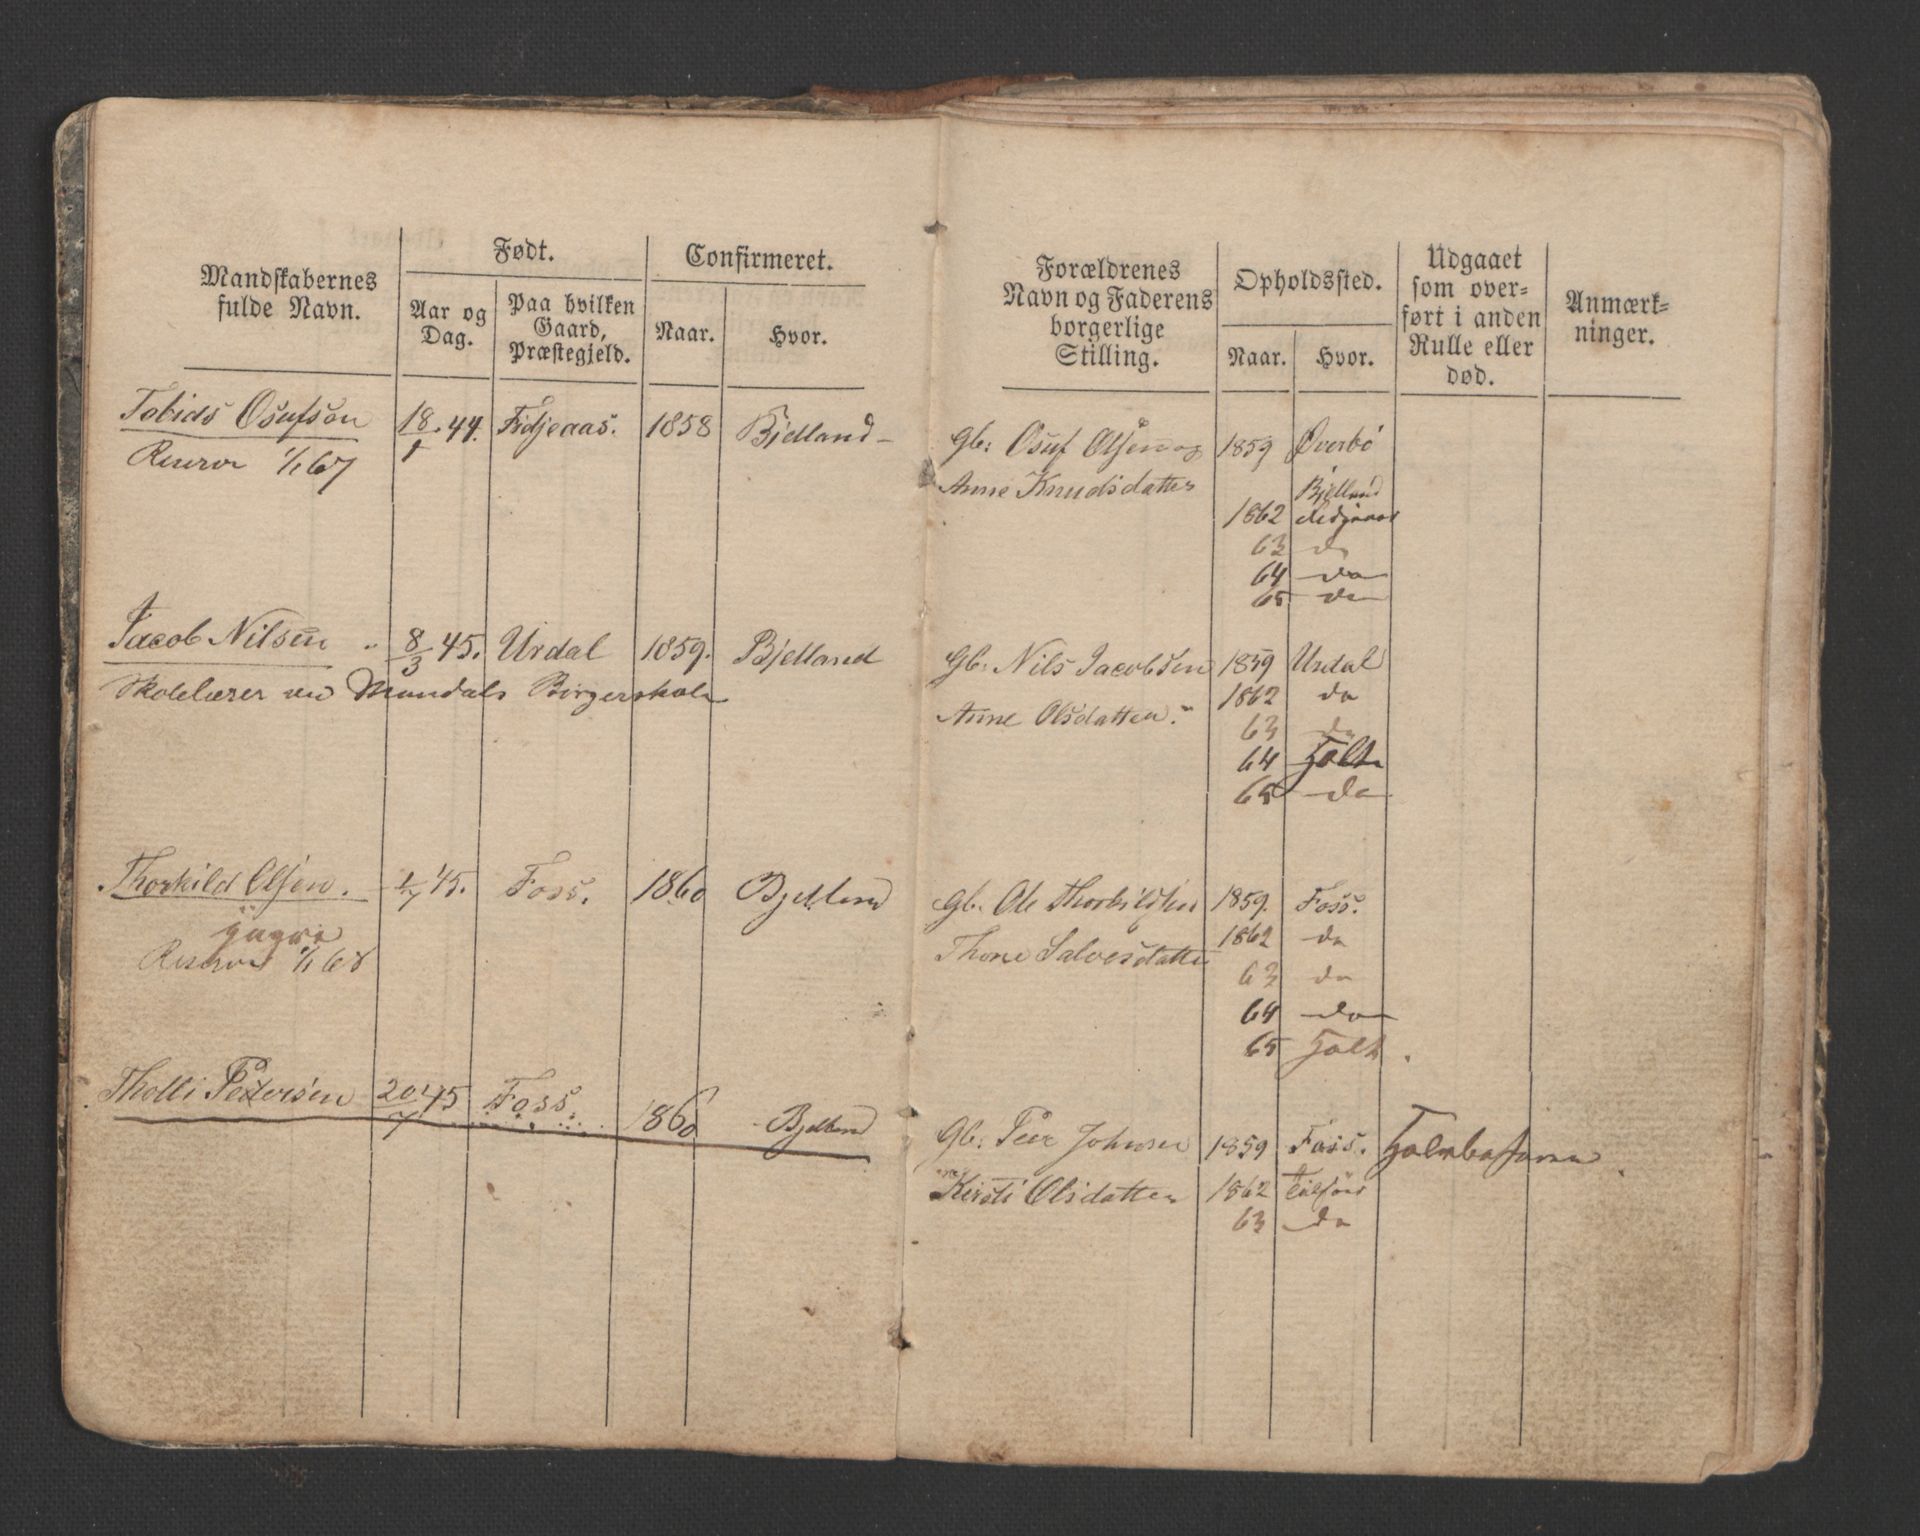 Mandskabernes
fulde Navn.
Født.
Aar og
Dag.
Paa hvilken
Gaard,
Præstegjeld.
Confirmeret.
Naar.
Hvor.
Tobias Osufsön 18/1 44. Fidjeaas. 1858 Bjelland
Reserve 1/1 67
Jacob Nilsen 8/3 45. Urdal 1859. Bjelland
Skolelærer ved Mandals Borgerskole
Thorkild Olsen. 45. Foss. 1860 Bjelland
Reserve 1/1 68
Tholli Pedersen 20/7 45 Foss. 1860 Bjelland
Forældrenes
Navn og Faderens
borgerlige
Stilling.
Opholdssted.
Naar.
Hvor.
Udgaaet
som over-
ført i anden
Rulle eller
død.
Anmærk-
ninger.
Gb: Osuf Olsen og 1859 Øverbö
Anne Knudsdatter Bjelland
1862
63 do
64 do
65 do
Gb: Nils Jacobsen 1859 Urdal
1862 do
Anne Olsdatter.
63 do
64 Holt
65 do
Gb. Ole Thorkildsen 1859. Foss.
1862 do
Thone Salvesdatter
63 do
64 do
65 Holt.
Gb: Peer Johnsen 1859 Foss.
Kirsti Olsdatter 1862
63 do